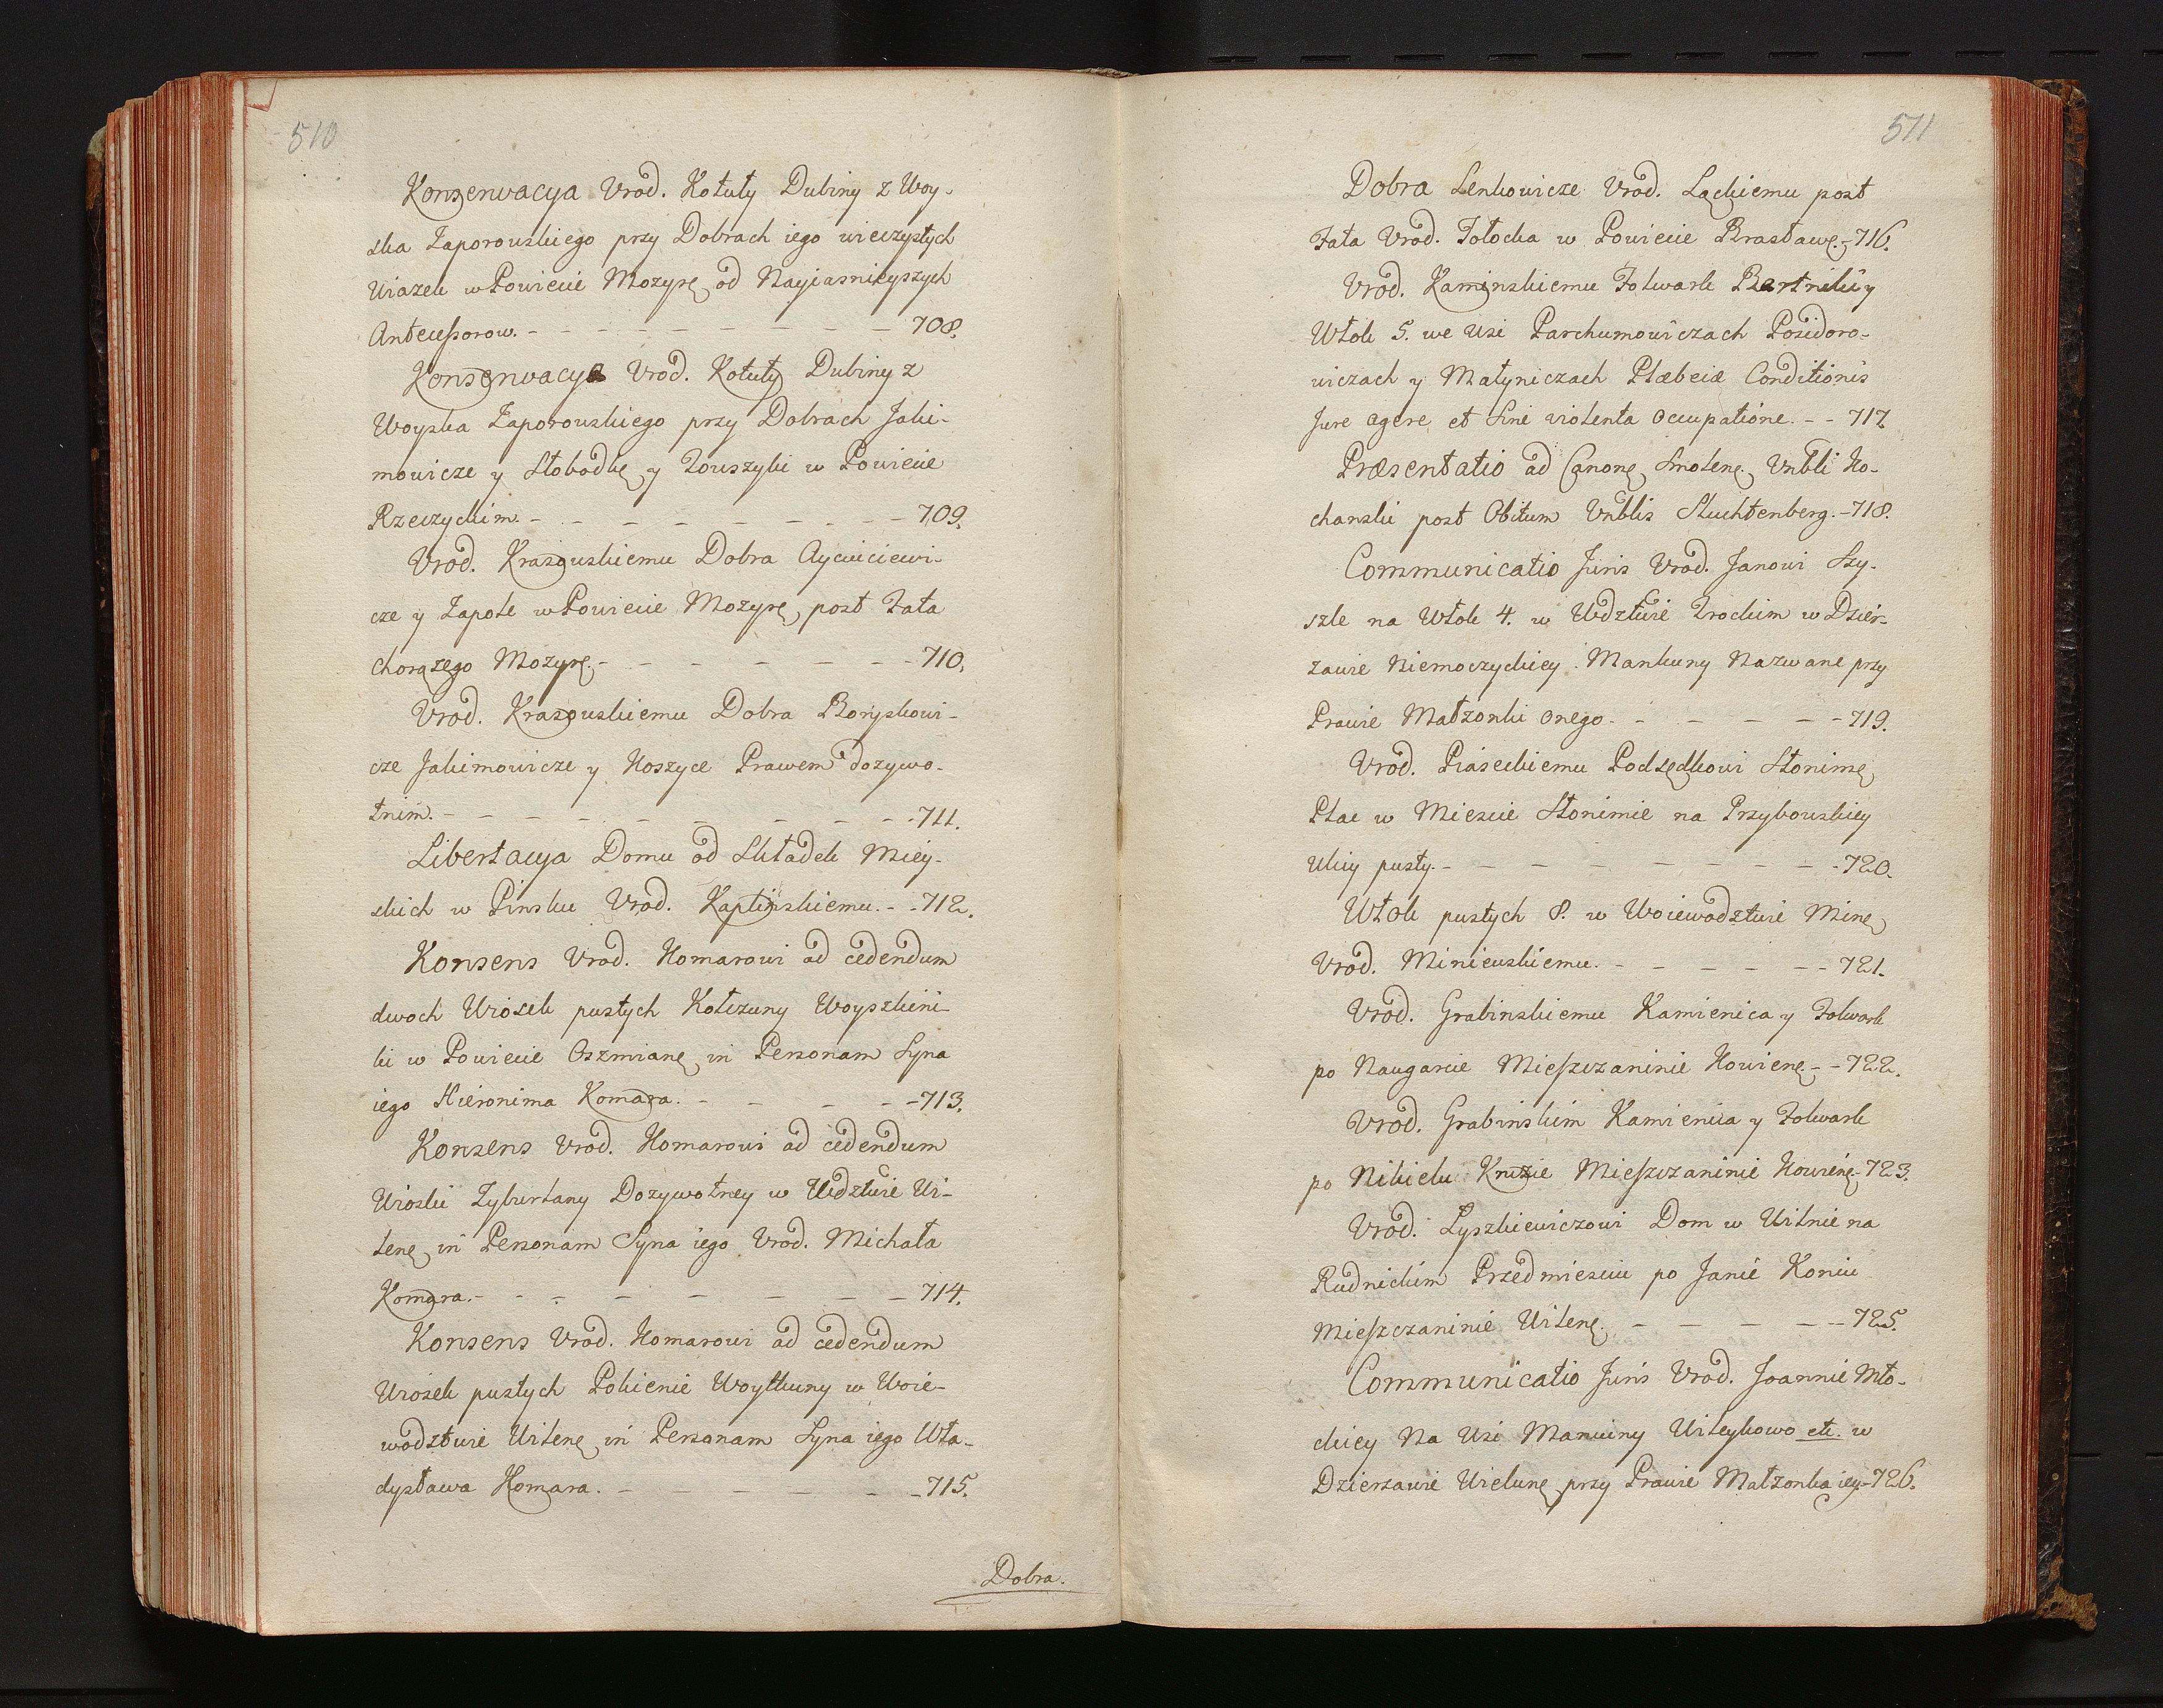 510
Konserwacya Vrod. Kotuły Dubiny z Woy-
ska Zaporowskiego przy Dobrach iego wieczystych
Wiazek w Powiecie Mozyrę od Nayiasnieyszych
Antecessorow. - - - - - - - - 708.
Konserwacya Vrod. Kotuły Dubiny z
Woyska Zaporowskiego przy Dobrach Jaki-
mowicze y Słobodkę y Towszyki w Powiecie
Rzeczyckim. - - - - - - - - 709.
Vrod. Krasowskiemu Dobra
cze y Zapole w Powiecie Mozyrę post Fata
Chorązego Mozyrę. - - - - - - 710.
Vrod. Krasowskiemu Dobra Boryskowi-
cze Jakimowicze y Koszyce Prawem dozywo-
tnim. - - - - - - - - - 711.
Libertacya Domu od Składek Miey-
skich w Pinsku Vrod. Kaplinskiemu. - - 712.
Konsens Vrod. Komarowi ad cedendum
dwoch Wiosek pustych Kotczuny Woyszkini-
ki w Powiecie Oszmianę in Personam Syna
iego Hieronima Komara. - - - - - 713.
Konsens Vrod. Komarowi ad cedendum
Wioski Zyburtany Dozywotney w Wdztwie Wi-
lenę in Personam Syna iego Vrod. Michała
Komara. - - - - - - - - 714.
Konsens Vrod. Komarowi ad cedendum
Wiosek pustych Pokienie Woytkuny w Woie-
wodztwie Wilenę in Personam Syna iego Wła-
dysława Komara. - - - - - - 715.
Dobra.
511
Dobra Lenkowicze Vrod. Ląckiemu post
Fata Vrod. Tołocka w Powiecie Brasławę. - 716.
Vrod. Kaminskiemu Folwark Bartniki y
Włok 5. we Wsi Parchumowiczach Posidoro-
wiczach y Matyniczach Plæbeiæ Conditionis
Jure agere et sine violenta occupatione. - - 717.
Præsentatio ad Canonę Smolenę Vnbli Ko-
chanski post Obitum Vnblis Sluchtenberg. - 718.
Communicatio Juris Vrod. Janowi Szy-
szle na Włok 4. w Wdztwie Trockim w Dzier-
zawie Niemoczyckiey Mankuny Nazwane przy
Prawie Małzonki onego. - - - - - 719.
Vrod. Piaseckiemu Podsędkowi Słonimę
Plac w Miescie Słonimie na Przybowskiey
Ulicy pusty. - - - - - - - - 720.
Włok pustych 8. w Woiewodztwie Minę
Vrod. Miniewskiemu. - - - - - - 721.
Vrod. Grabinskiemu Kamienica y Folwark
po Naugarcie Mieszczaninie Kowienę - - 722.
Vrod. Grabinskim Kamienica y Folwark
po Nikielu Kruzie Mieszczaninie Kowienę - 723.
Vrod. Łyszkiewiczowi Dom w Wilnie na
Rudnickim Przedmiesciu po Janie Koniu
Mieszczaninie Wilenę. - - - - - - 725.
Communicatio Juris Vrod. Joannie Mło-
ckiey Na Wsi Manuiny Witeykowo etc. w
Dzierzawie Wielunę przy Prawie Małzonka iey. - 726.